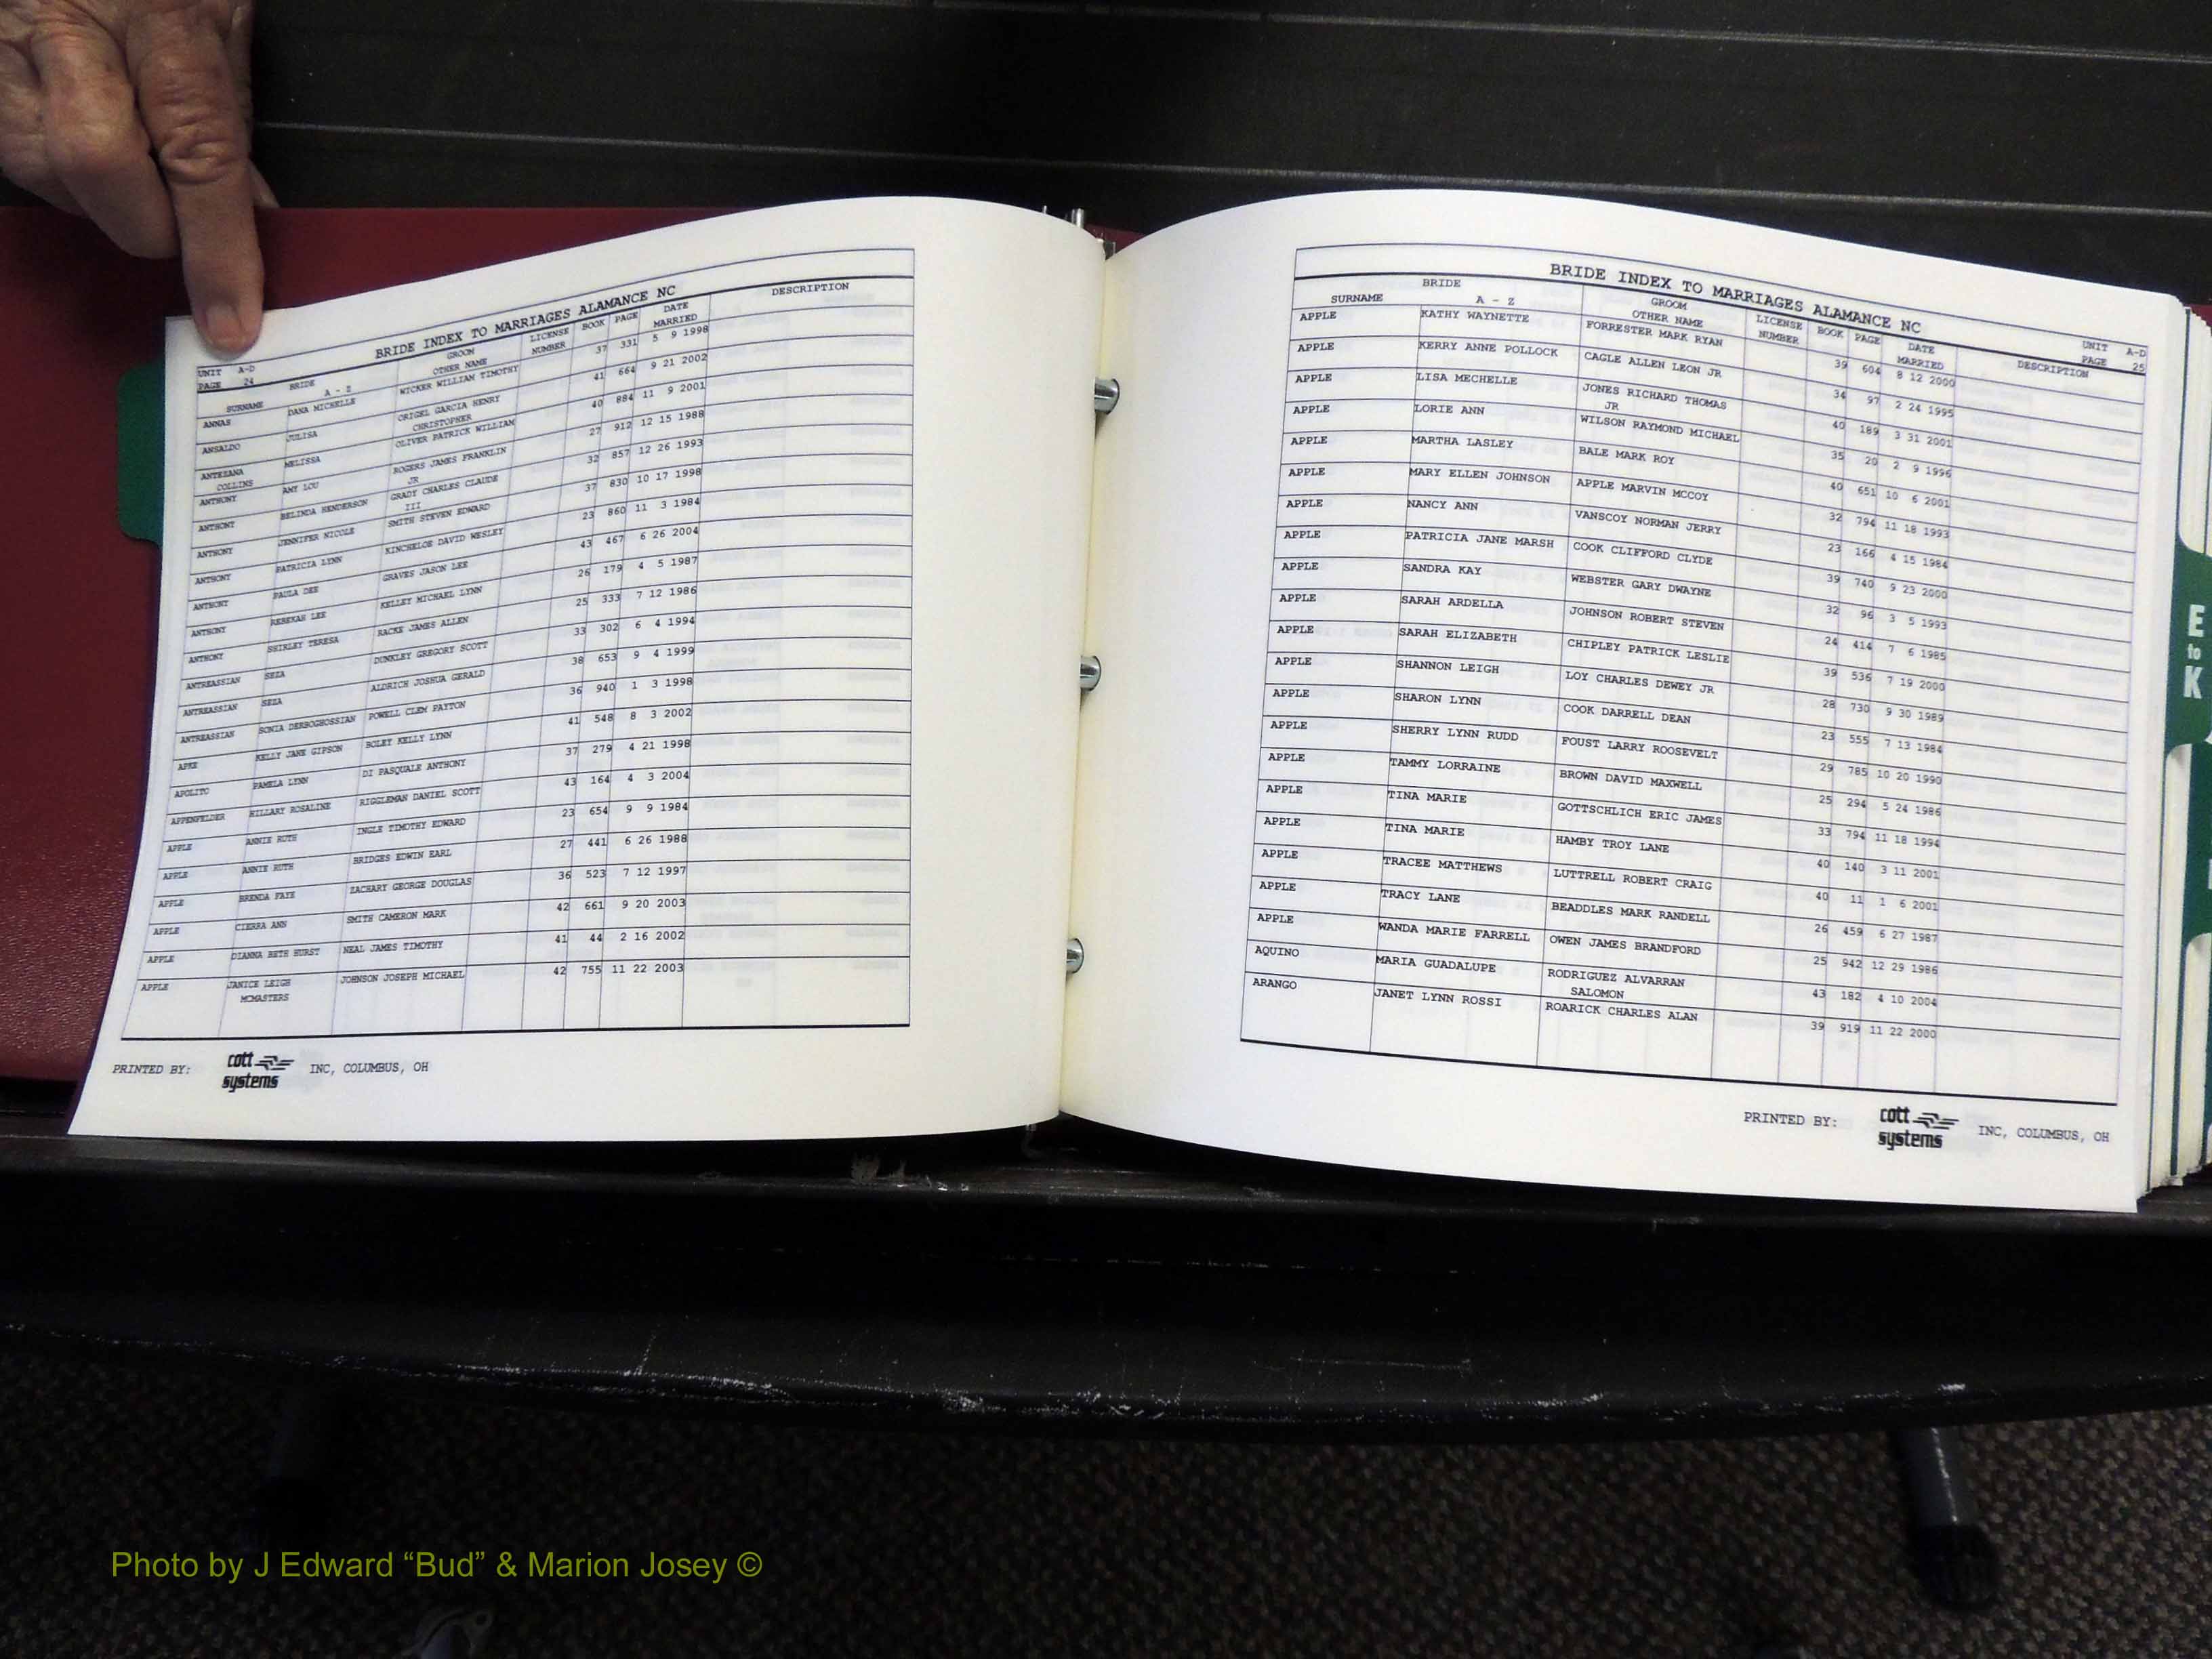 BRIDE INDEX TO MARRIAGES ALAMANCE NC
UNIT A-D
PAGE 24
SURNAME BRIDE A - Z GROOM OTHER NAME LICENSE NUMBER BOOK PAGE DATE MARRIED DESCRIPTION
ANNAS DANA MICHELLE WICKER WILLIAM TIMOTHY 37 331 5 9 1998
ANSALDO JULISA ORIGEL GARCIA HENRY 41 664 9 21 2002
CHRISTOPHER
ANTEZANA MELISSA OLIVER PATRICK WILLIAM 40 884 11 9 2001
COLLINS
ANTHONY AMY LOU ROGERS JAMES FRANKLIN 27 912 12 15 1988
JR
ANTHONY BELINDA HENDERSON GRADY CHARLES CLAUDE 32 857 12 26 1993
III
ANTHONY JENNIFER NICOLE SMITH STEVEN EDWARD 37 830 10 17 1998
ANTHONY PATRICIA LYNN KINCHELOE DAVID WESLEY 23 860 11 3 1984
ANTHONY PAULA DEE GRAVES JASON LEE 43 467 6 26 2004
ANTHONY REBEKAH LEE KELLEY MICHAEL LYNN 26 179 4 5 1987
ANTHONY SHIRLEY TERESA RACKE JAMES ALLEN 25 333 7 12 1986
ANTREASSIAN SEZA DUNKLEY GREGORY SCOTT 33 302 6 4 1994
ANTREASSIAN SEZA ALDRICH JOSHUA GERALD 38 653 9 4 1999
ANTREASSIAN SONIA DERBOGHOSSIAN POWELL CLEM PAYTON 36 940 1 3 1998
APKE KELLY JANE GIPSON BOLEY KELLY LYNN 41 548 8 3 2002
APOLITO PAMELA LYNN DI PASQUALE ANTHONY 37 279 4 21 1998
APPENFELDER HILLARY ROSALINE RIGGLEMAN DANIEL SCOTT 43 164 4 3 2004
APPLE ANNIE RUTH INGLE TIMOTHY EDWARD 23 654 9 9 1984
APPLE ANNIE RUTH BRIDGES EDWIN EARL 27 441 6 26 1988
APPLE BRENDA FAYE ZACHARY GEORGE DOUGLAS 36 523 7 12 1997
APPLE CIERRA ANN SMITH CAMERON MARK 42 661 9 20 2003
APPLE DIANNA BETH HURST NEAL JAMES TIMOTHY 41 44 2 16 2002
APPLE JANICE LEIGH JOHNSON JOSEPH MICHAEL 42 755 11 22 2003
MCMASTERS
PRINTED BY: cott systems INC, COLUMBUS, OH
BRIDE INDEX TO MARRIAGES ALAMANCE NC
UNIT A-D
PAGE 25
SURNAME BRIDE A - Z GROOM OTHER NAME LICENSE NUMBER BOOK PAGE DATE MARRIED DESCRIPTION
APPLE KATHY WAYNETTE FORRESTER MARK RYAN 39 604 8 12 2000
APPLE KERRY ANNE POLLOCK CAGLE ALLEN LEON JR 34 97 2 24 1995
APPLE LISA MECHELLE JONES RICHARD THOMAS 40 189 3 31 2001
JR
APPLE LORIE ANN WILSON RAYMOND MICHAEL 35 20 2 9 1996
APPLE MARTHA LASLEY BALE MARK ROY 40 651 10 6 2001
APPLE MARY ELLEN JOHNSON APPLE MARVIN MCCOY 32 794 11 18 1993
APPLE NANCY ANN VANSCOY NORMAN JERRY 23 166 4 15 1984
APPLE PATRICIA JANE MARSH COOK CLIFFORD CLYDE 39 740 9 23 2000
APPLE SANDRA KAY WEBSTER GARY DWAYNE 32 96 3 5 1993
APPLE SARAH ARDELLA JOHNSON ROBERT STEVEN 24 414 7 6 1985
APPLE SARAH ELIZABETH CHIPLEY PATRICK LESLIE 39 536 7 19 2000
APPLE SHANNON LEIGH LOY CHARLES DEWEY JR 28 730 9 30 1989
APPLE SHARON LYNN COOK DARRELL DEAN 23 555 7 13 1984
APPLE SHERRY LYNN RUDD FOUST LARRY ROOSEVELT 29 785 10 20 1990
APPLE TAMMY LORRAINE BROWN DAVID MAXWELL 25 294 5 24 1986
APPLE TINA MARIE GOTTSCHLICH ERIC JAMES 33 794 11 18 1994
APPLE TINA MARIE HAMBY TROY LANE 40 140 3 11 2001
APPLE TRACEE MATTHEWS LUTTRELL ROBERT CRAIG 40 11 1 6 2001
APPLE TRACY LANE BEADDLES MARK RANDELL 26 459 6 27 1987
APPLE WANDA MARIE FARRELL OWEN JAMES BRANDFORD 25 942 12 29 1986
AQUINO MARIA GUADALUPE RODRIGUEZ ALVARRAN 43 182 4 10 2004
SALOMON
ARANGO JANET LYNN ROSSI ROARICK CHARLES ALAN 39 919 11 22 2000
PRINTED BY: cott systems INC, COLUMBUS, OH
E
to
K
Photo by J Edward “Bud” & Marion Josey ©